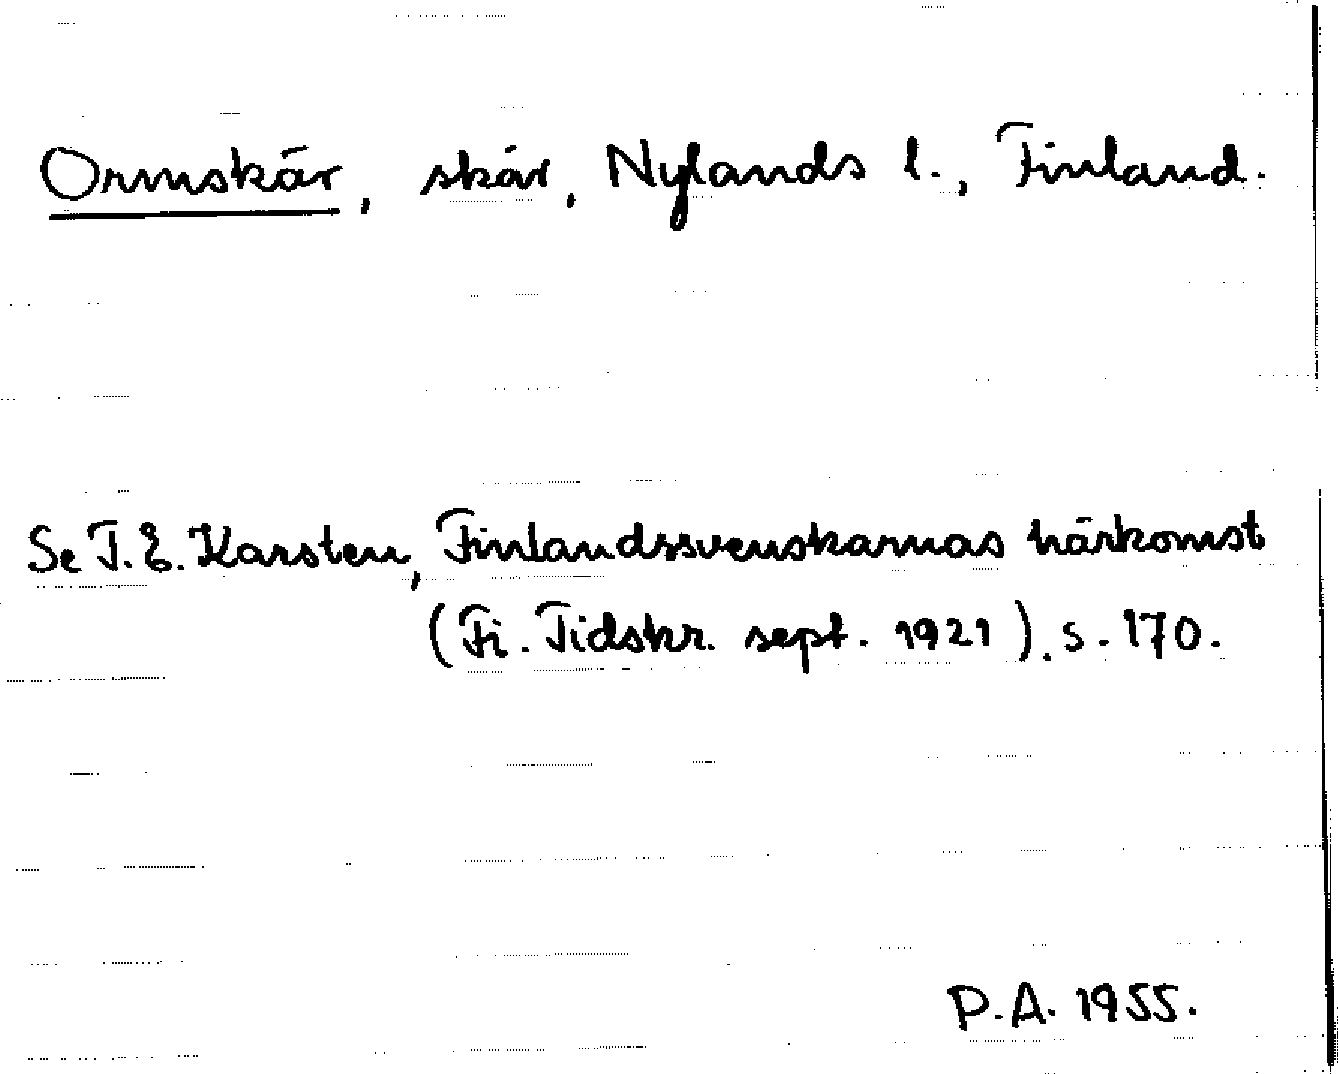 Ormskär, skär, Nylands l., Finland.
Se T. E. Karsten, Finlandssvenskarnas härkomst
(Fi. Tidskr. sept. 1921). s. 170.
P.A. 1955.